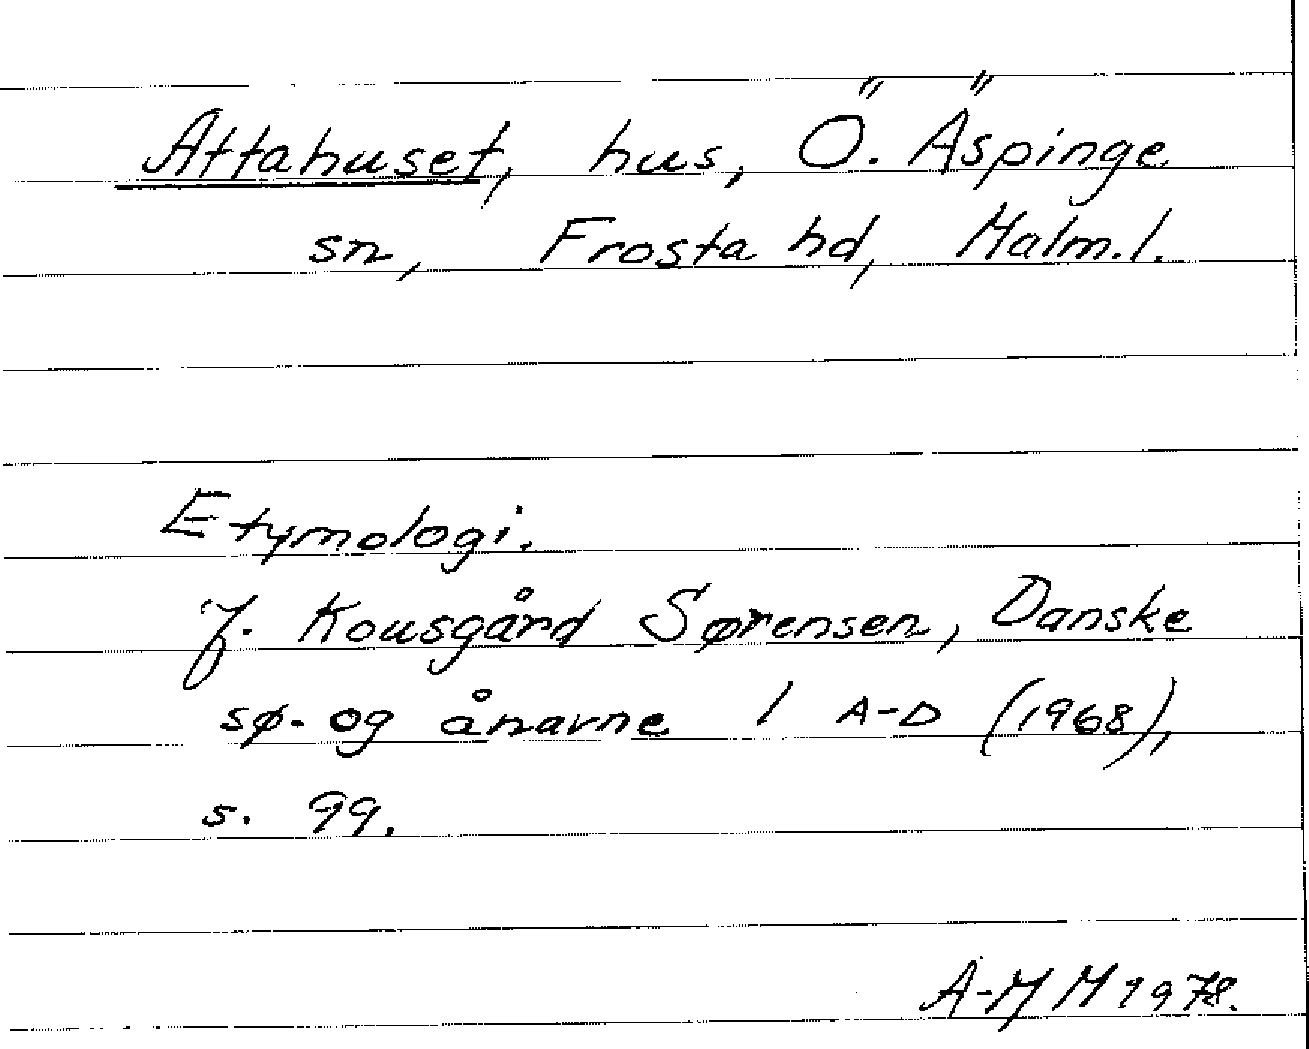 Attahuset, hus, Ö. Äspinge
sn, Frosta hd, Malm.l.
Etymologi.
J. Kousgård Sørensen, Danske
sø- og ånavne 1 A-D (1968),
s. 99.
A-M M 1978.